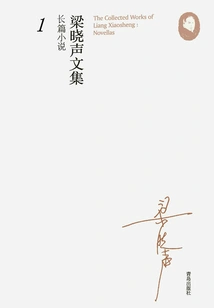 The Collected Works of
Liang Xiaosheng :
Novellas
梁晓声文集
长篇小说
1
梁晓声
青岛出版社